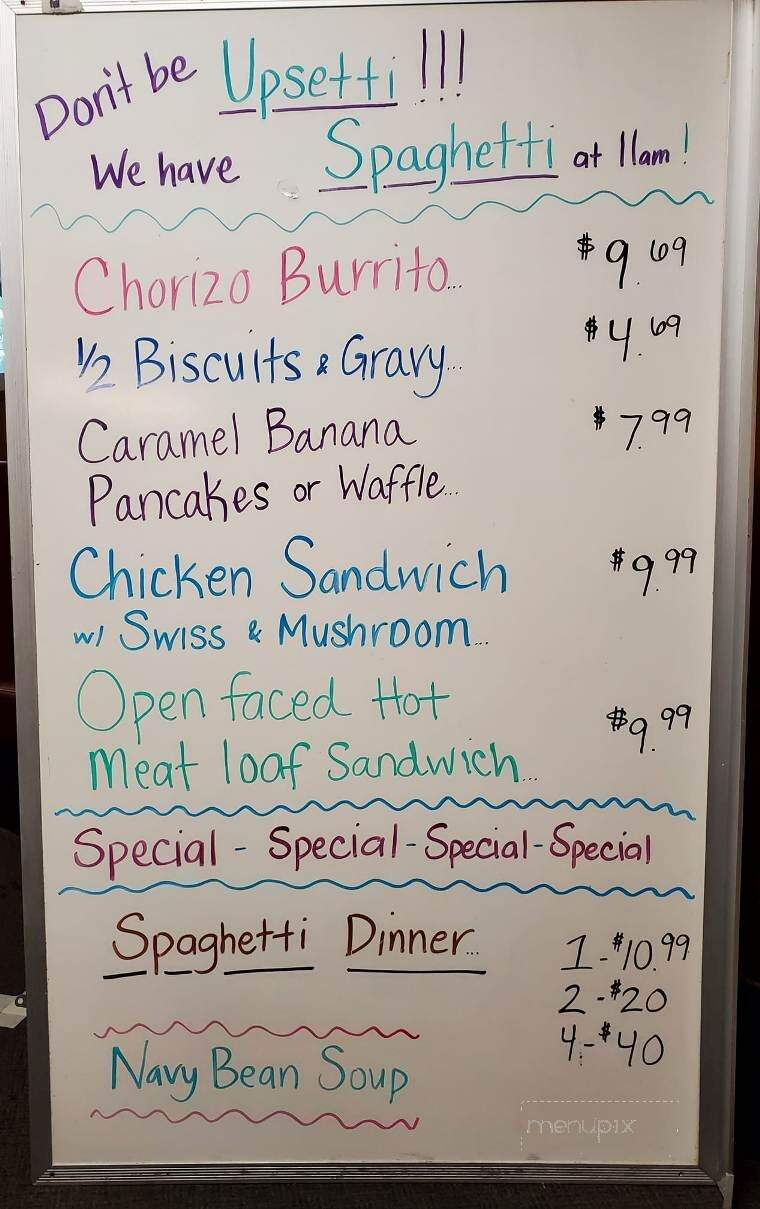 Don't be Upsetti !!!
We have Spaghetti at 11am!
Chorizo Burrito... $9.69
1/2 Biscuits & Gravy... $4.69
Caramel Banana $7.99
Pancakes or Waffle...
Chicken Sandwich $9.99
w/ Swiss & Mushroom...
Open faced Hot
Meat loaf Sandwich... $9.99
Special - Special - Special - Special
Spaghetti Dinner... 1-$10.99
2-$20
4-$40
Navy Bean Soup
menupix